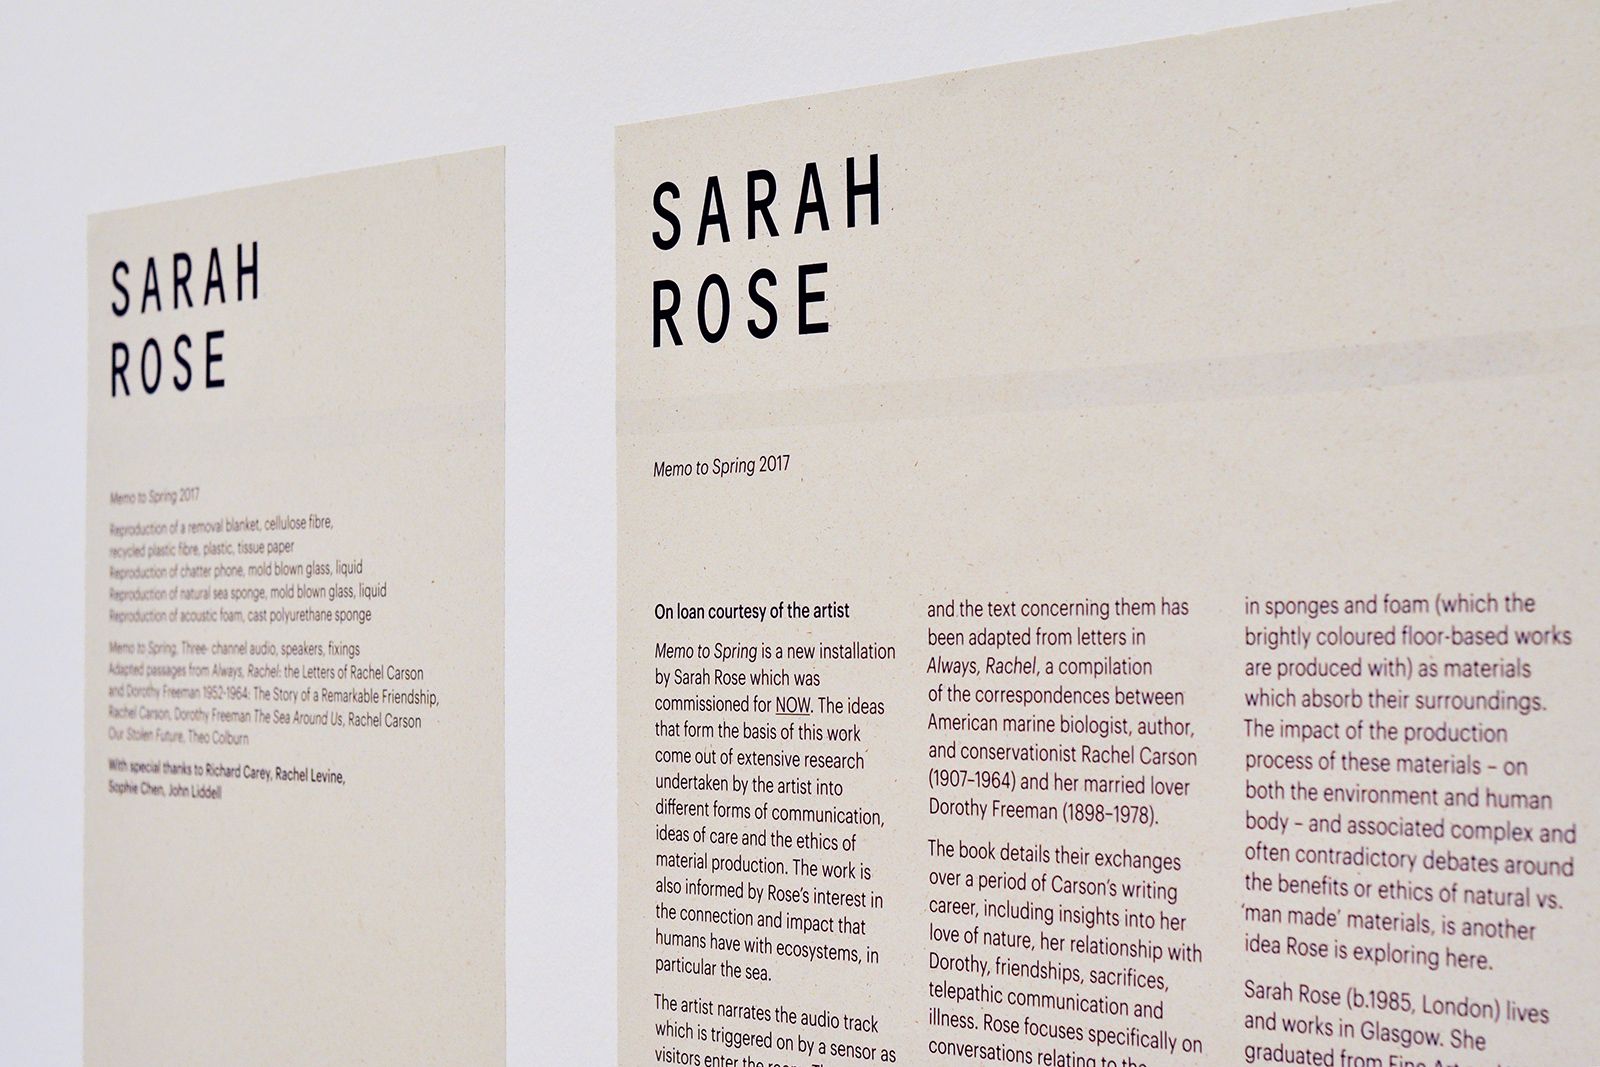 SARAH
ROSE
Memo to Spring 2017
Reproduction of a removal blanket, cellulose fibre,
recycled plastic fibre, plastic, tissue paper
Reproduction of chatter phone, mold blown glass, liquid
Reproduction of natural sea sponge, mold blown glass, liquid
Reproduction of acoustic foam, cast polyurethane sponge
Memo to Spring. Three- channel audio, speakers, fixings
Adapted passages from Always, Rachel: the Letters of Rachel Carson
and Dorothy Freeman 1952-1964: The Story of a Remarkable Friendship,
Rachel Carson, Dorothy Freeman The Sea Around Us, Rachel Carson
Our Stolen Future, Theo Colburn
With special thanks to Richard Carey, Rachel Levine,
Sophie Chen, John Liddell
SARAH
ROSE
Memo to Spring 2017
On loan courtesy of the artist
Memo to Spring is a new installation
by Sarah Rose which was
commissioned for NOW. The ideas
that form the basis of this work
come out of extensive research
undertaken by the artist into
different forms of communication,
ideas of care and the ethics of
material production. The work is
also informed by Rose's interest in
the connection and impact that
humans have with ecosystems, in
particular the sea.
The artist narrates the audio track
which is triggered on by a sensor as
visitors enter the
and the text concerning them has
been adapted from letters in
Always, Rachel, a compilation
of the correspondences between
American marine biologist, author,
and conservationist Rachel Carson
(1907–1964) and her married lover
Dorothy Freeman (1898–1978).
The book details their exchanges
over a period of Carson's writing
career, including insights into her
love of nature, her relationship with
Dorothy, friendships, sacrifices,
telepathic communication and
illness. Rose focuses specifically on
conversations relating to the
in sponges and foam (which the
brightly coloured floor-based works
are produced with) as materials
which absorb their surroundings.
The impact of the production
process of these materials – on
both the environment and human
body – and associated complex and
often contradictory debates around
the benefits or ethics of natural vs.
'man made' materials, is another
idea Rose is exploring here.
Sarah Rose (b.1985, London) lives
and works in Glasgow. She
graduated from Fine